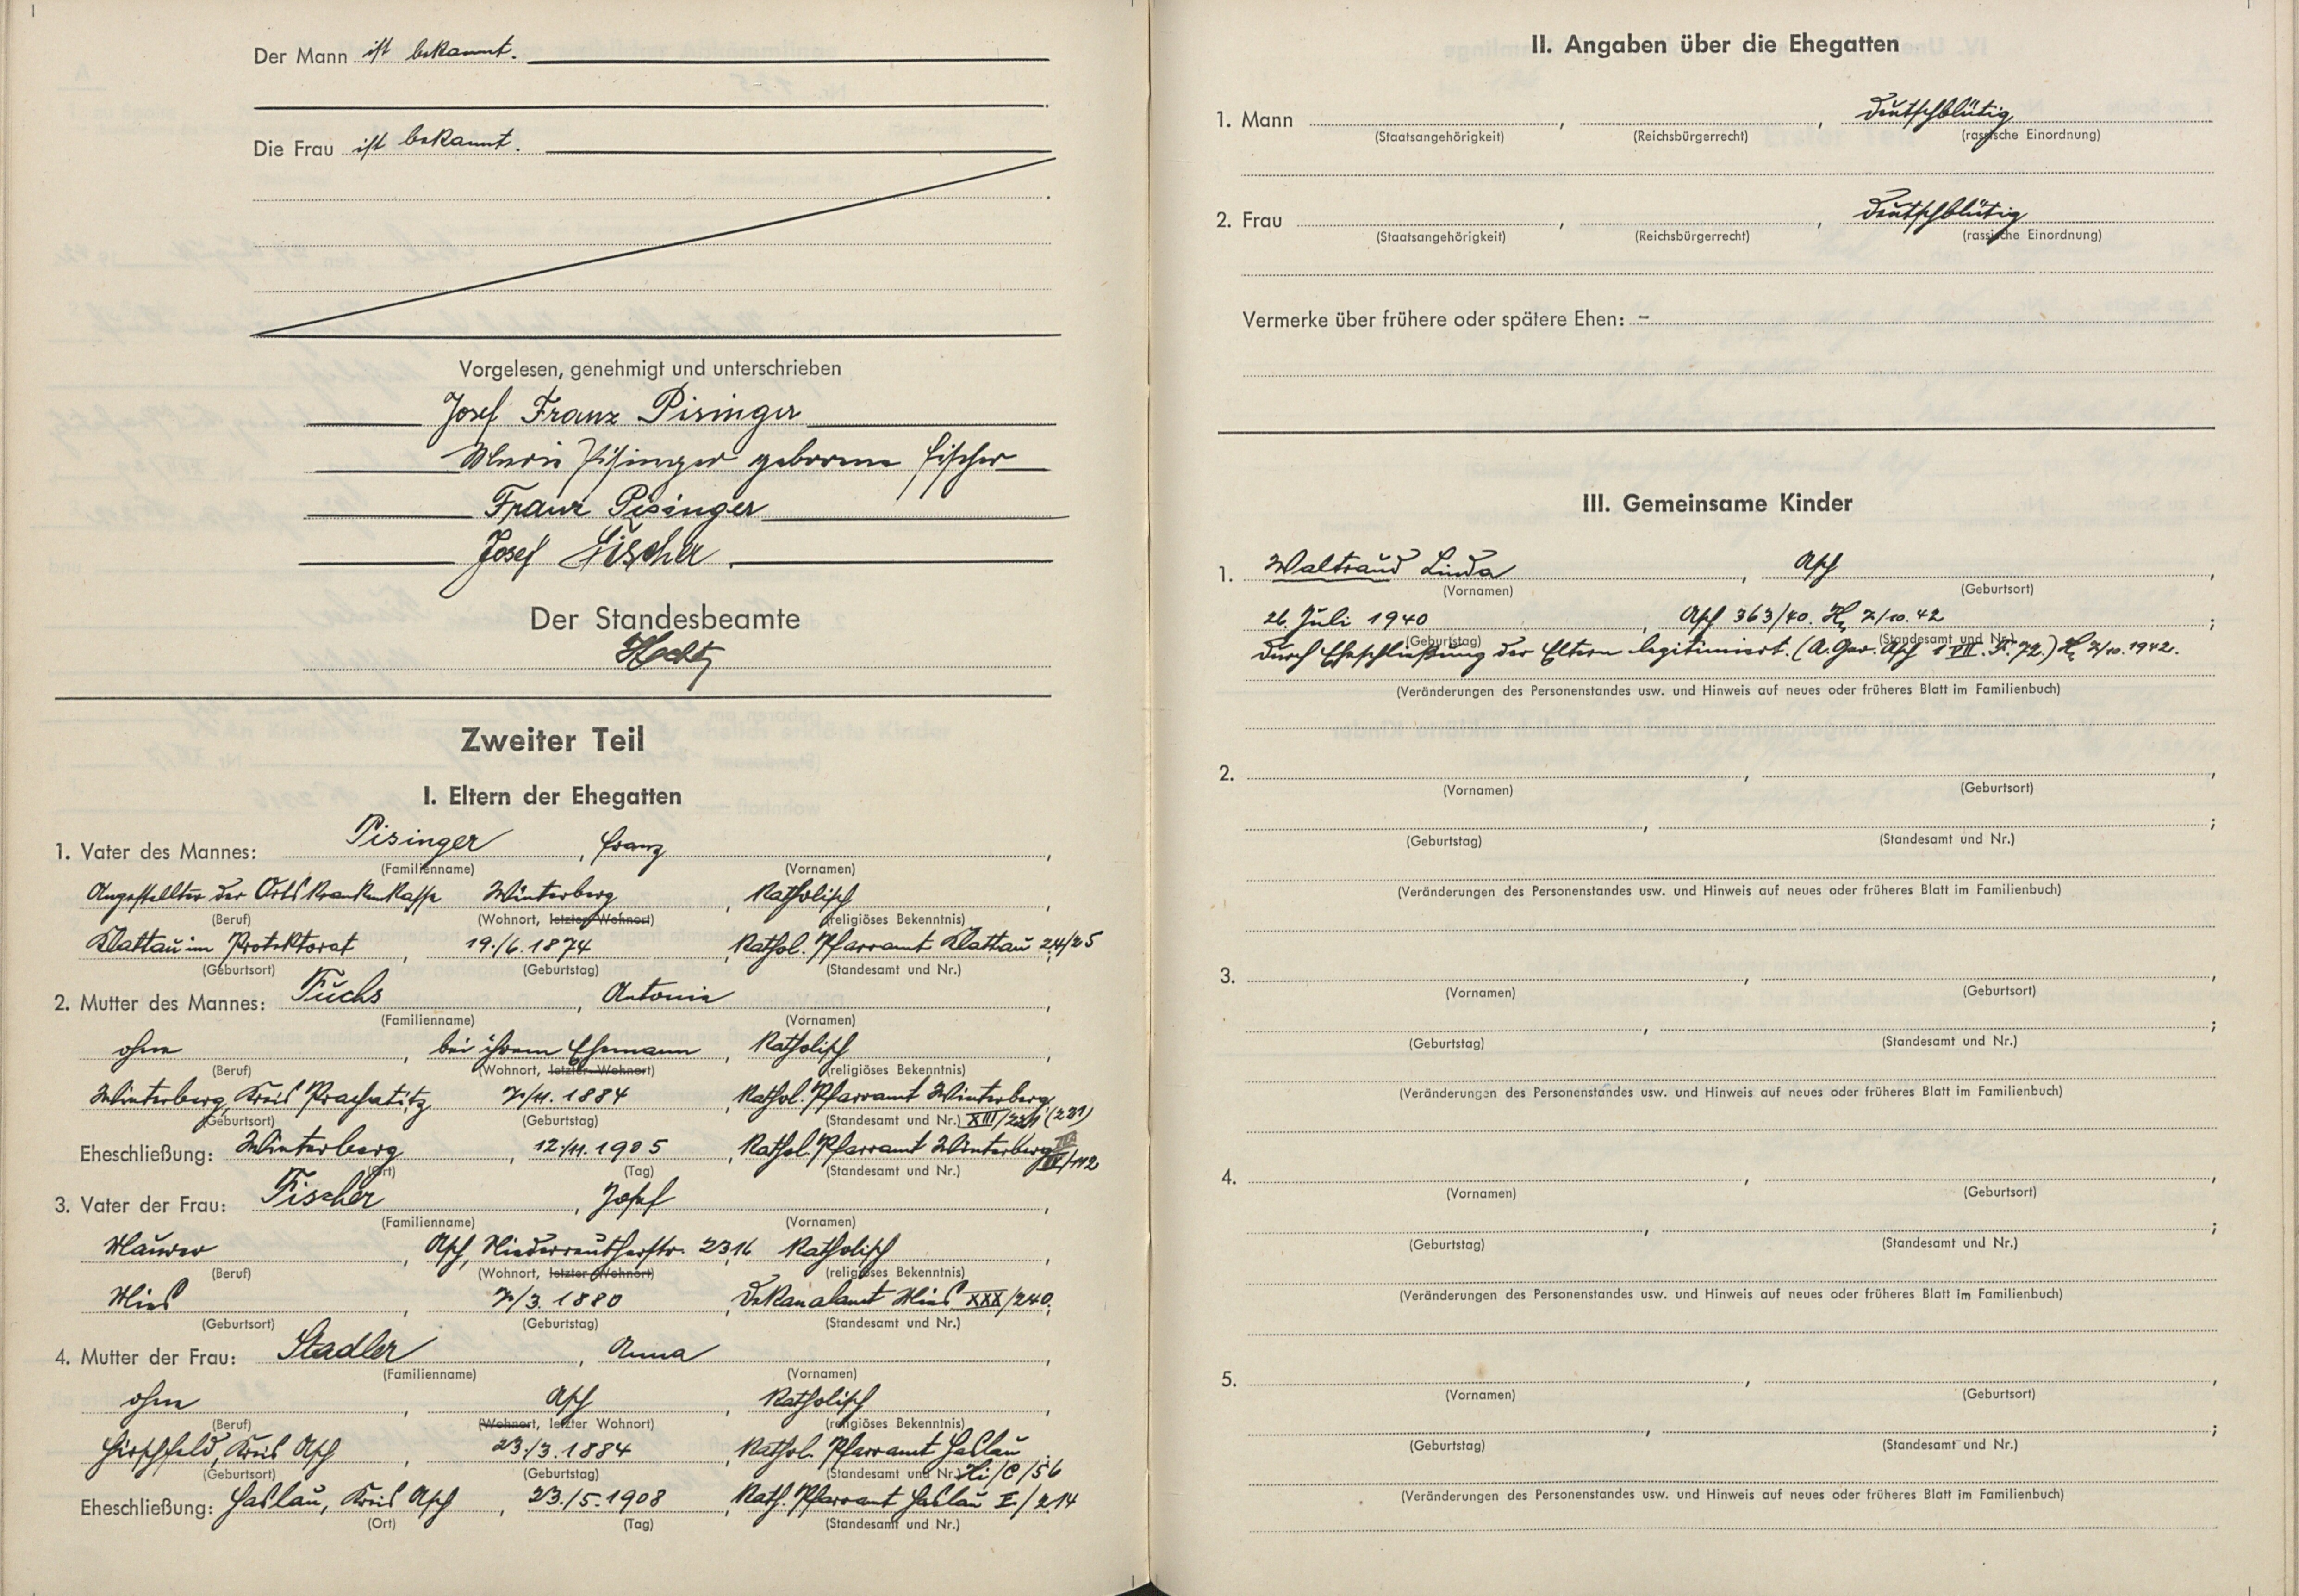 Der Mann ist bekannt.
Die Frau ist bekannt.
Vorgelesen, genehmigt und unterschrieben
Josef Franz Pisinger
Marie Pisinger geborene Fischer
Franz Pisinger
Josef Fischer
Der Standesbeamte
Zweiter Teil
I. Eltern der Ehegatten
1. Vater des Mannes: Pisinger, Franz
(Familienname) (Vornamen)
Angestellter der Ortskrankenkasse Winterberg, katholisch,
(Beruf) (Wohnort, letzter Wohnort) (religiöses Bekenntnis)
Klattau im Protektorat, 19./6.1874, Kathol. Pfarramt Klattau 24/25
(Geburtsort) (Geburtstag) (Standesamt und Nr.)
2. Mutter des Mannes: Fuchs, Antonie,
(Familienname) (Vornamen)
ohne, bei ihrem Ehemann, katholisch,
(Beruf) (Wohnort, letzter Wohnort) (religiöses Bekenntnis)
Winterberg, Kreis Prachatitz 7./11.1884, Kathol. Pfarramt Winterberg
(Geburtsort) (Geburtstag) (Standesamt und Nr.) XIII/221 (221)
Eheschließung: Winterberg, 12./11.1905, Kathol. Pfarramt Winterberg /112
(Ort) (Tag) (Standesamt und Nr.)
3. Vater der Frau: Fischer, Josef,
(Familienname) (Vornamen)
Maurer, Asch, Niederreutherstr. 2316 katholisch,
(Beruf) (Wohnort, letzter Wohnort) (religiöses Bekenntnis)
Mies, 7./3.1880, Dekanalamt Mies XXX/240,
(Geburtsort) (Geburtstag) (Standesamt und Nr.)
4. Mutter der Frau: Stadler, Anna,
(Familienname) (Vornamen)
ohne, Asch, katholisch,
(Beruf) (Wohnort, letzter Wohnort) (religiöses Bekenntnis)
Hirschfeld, Kreis Asch, 23./3.1884, Kathol. Pfarramt Haslau
(Geburtsort) (Geburtstag) (Standesamt und Nr.) Hi/C/56
Eheschließung: Haslau, Kreis Asch, 23./5.1908, Kath. Pfarramt Haslau E/214
(Ort) (Tag) (Standesamt und Nr.)
II. Angaben über die Ehegatten
1. Mann , , deutschblütig
(Staatsangehörigkeit) (Reichsbürgerrecht) (rassische Einordnung)
2. Frau , , deutschblütig
(Staatsangehörigkeit) (Reichsbürgerrecht) (rassische Einordnung)
Vermerke über frühere oder spätere Ehen: –
III. Gemeinsame Kinder
1. Waltraud Linda, Asch,
(Vornamen) (Geburtsort)
26. Juli 1940, Asch 363/40. 7/10.42;
(Geburtstag) (Standesamt und Nr.)
durch Eheschließung der Eltern legitimiert. (A. Ger. Asch 1 VII. 72.) 7/10.1942.
(Veränderungen des Personenstandes usw. und Hinweis auf neues oder früheres Blatt im Familienbuch)
2. , ,
(Vornamen) (Geburtsort)
, ;
(Geburtstag) (Standesamt und Nr.)
(Veränderungen des Personenstandes usw. und Hinweis auf neues oder früheres Blatt im Familienbuch)
3. , ,
(Vornamen) (Geburtsort)
, ;
(Geburtstag) (Standesamt und Nr.)
(Veränderungen des Personenstandes usw. und Hinweis auf neues oder früheres Blatt im Familienbuch)
4. , ,
(Vornamen) (Geburtsort)
, ;
(Geburtstag) (Standesamt und Nr.)
(Veränderungen des Personenstandes usw. und Hinweis auf neues oder früheres Blatt im Familienbuch)
5. , ,
(Vornamen) (Geburtsort)
, ;
(Geburtstag) (Standesamt und Nr.)
(Veränderungen des Personenstandes usw. und Hinweis auf neues oder früheres Blatt im Familienbuch)